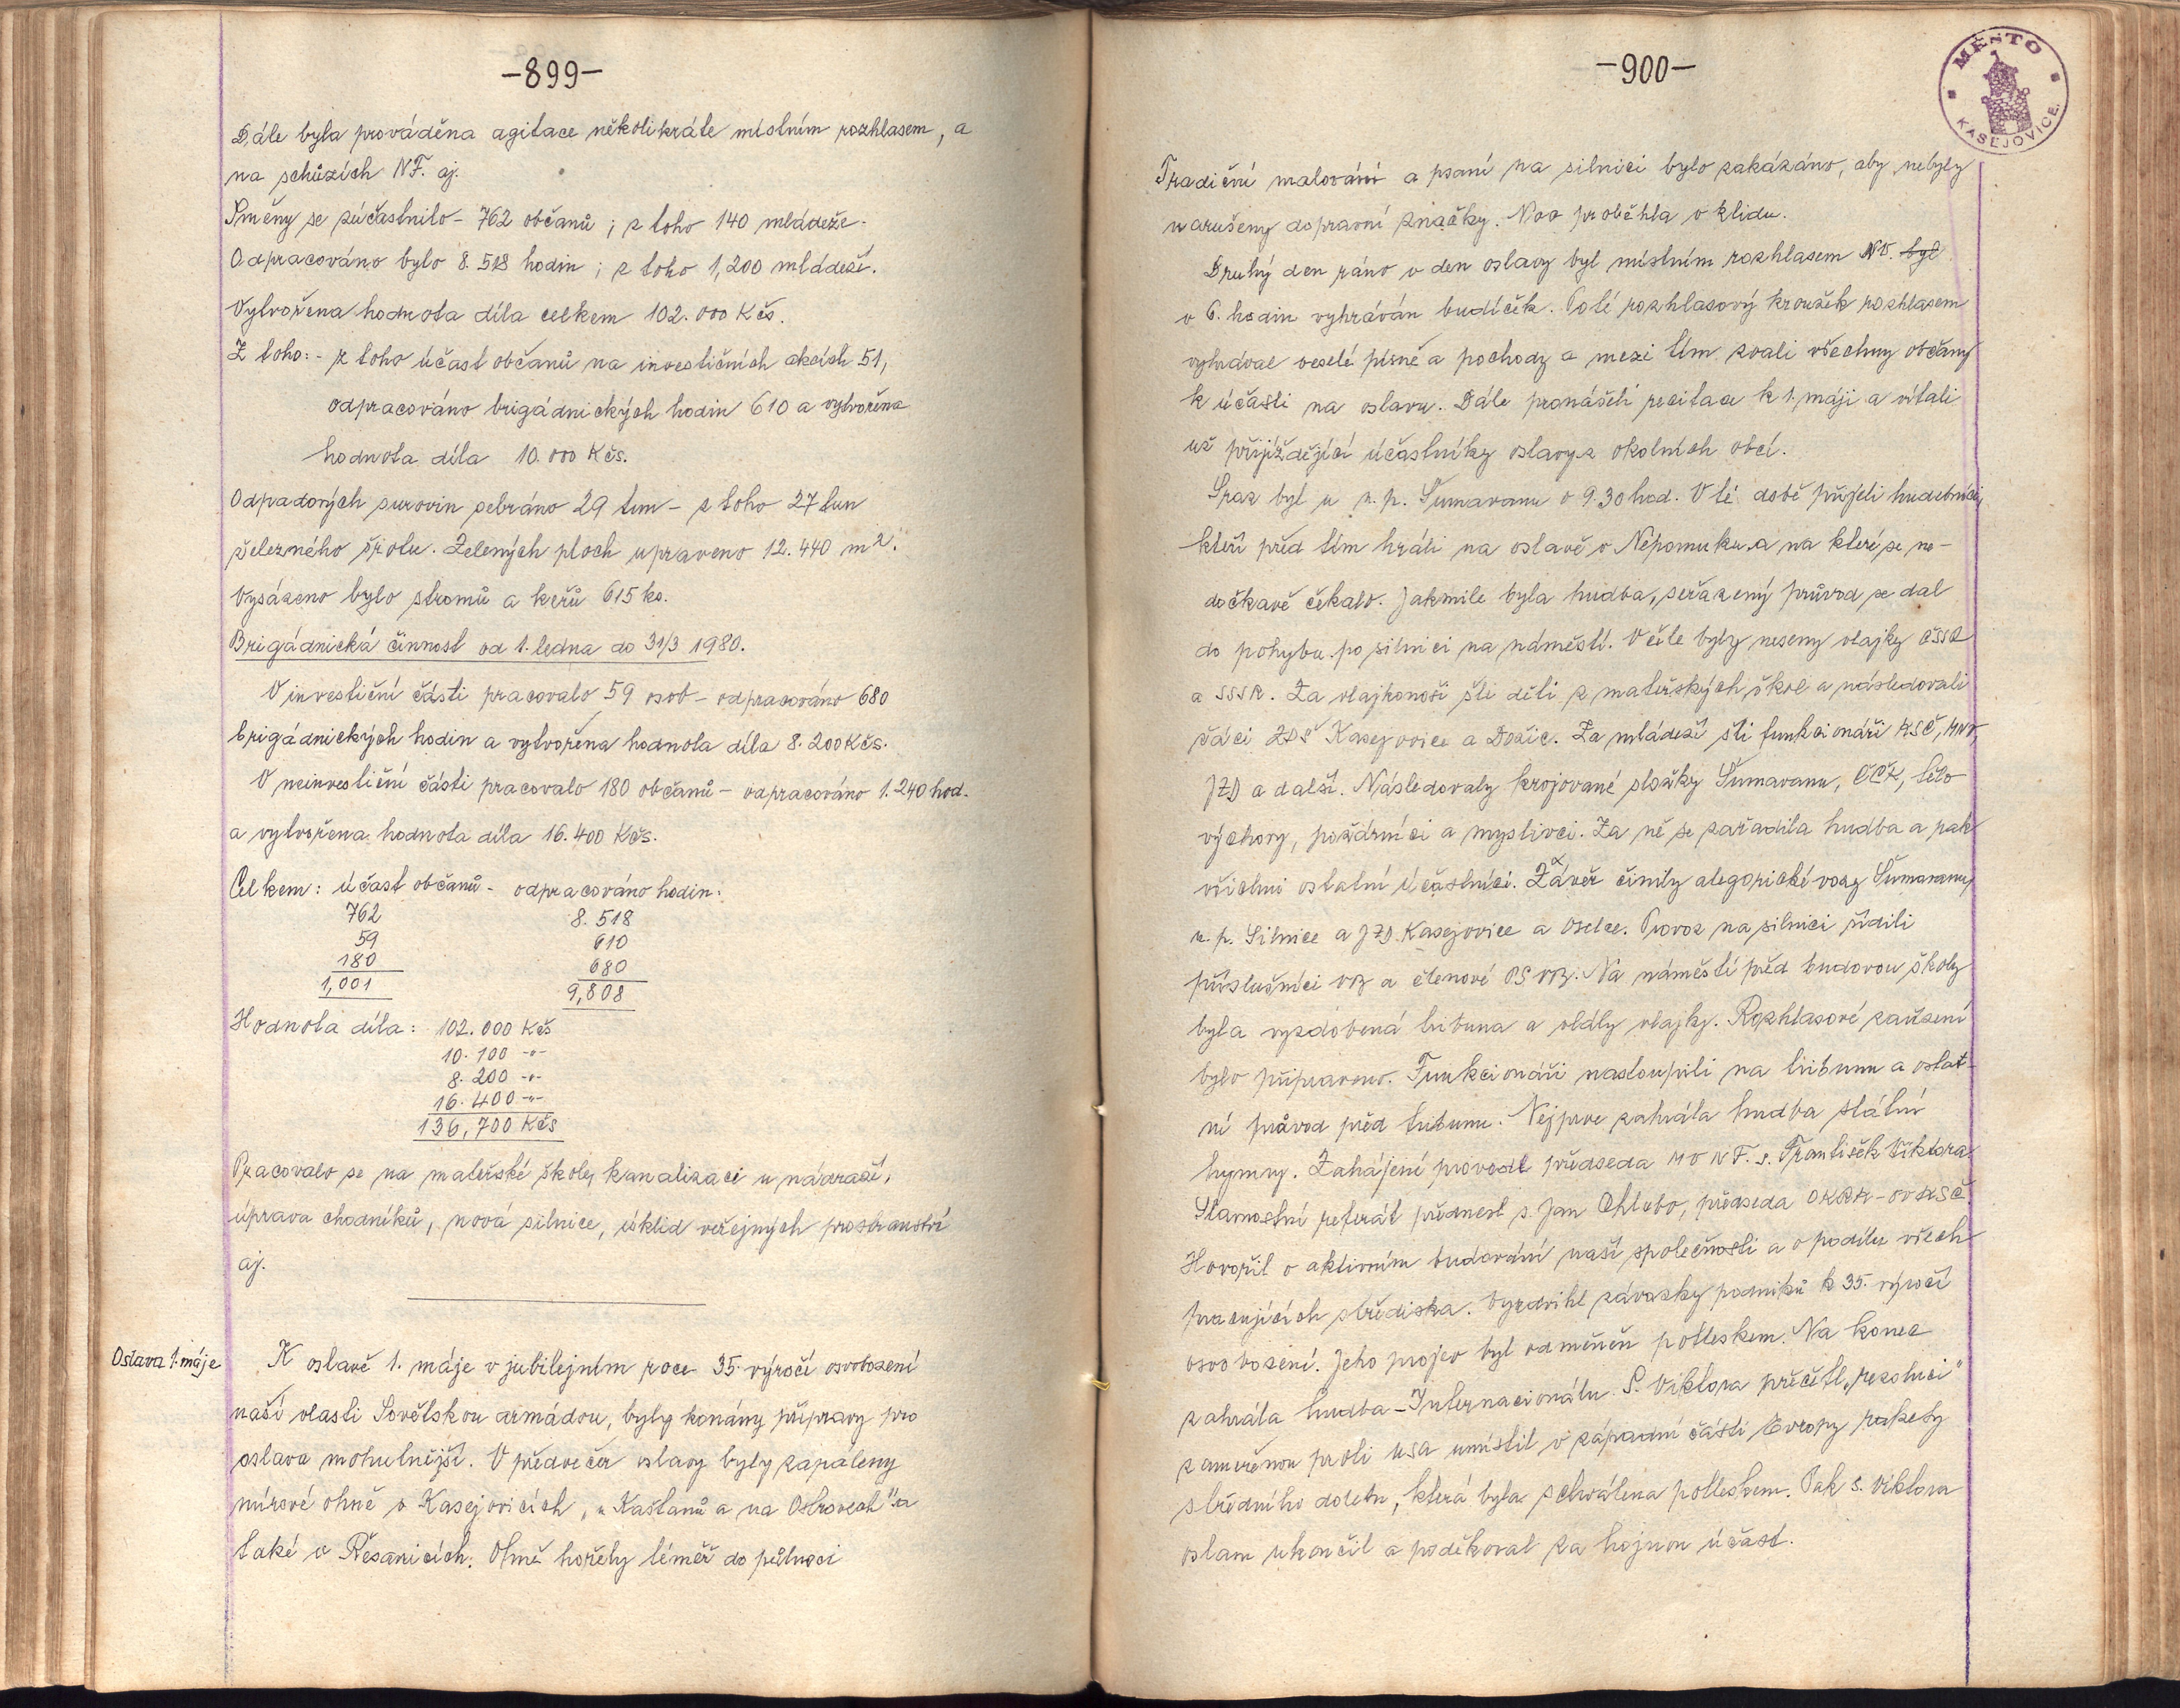 -899-
Dále byla prováděna agitace několikráte místním rozhlasem, a
na schůzích NF. aj.
Směny se zúčastnilo - 762 občanů ; z toho 140 mládeže.
Odpracováno bylo 8.518 hodin ; z toho 1,200 mládeží.
Vytvořena hodnota díla celkem 102.000 Kčs.
Z toho: - z toho účast občanů na investičních akcích 51,
odpracováno brigádnických hodin 610 a vytvořena
hodnota díla 10.000 Kčs.
Odpadových surovin sebráno 29 tun - z toho 27 tun
železného šrotu. Zelených ploch upraveno 12.440 m².
Vysázeno bylo stromů a keřů 615 ks.
Brigádnická činnost od 1. ledna do 31/3 1980.
V investiční části pracovalo 59 osob - odpracováno 680
brigádnických hodin a vytvořena hodnota díla 8.200 Kčs.
V neinvestiční části pracovalo 180 občanů - odpracováno 1.240 hod.
a vytvořena hodnota díla 16.400 Kčs.
Celkem: účast občanů - odpracováno hodin:
762 8.518
59 610
180 680
1,001 9,808
Hodnota díla: 102.000 Kčs
10.100 -"-
8.200 -"-
16.400 -"-
136,700 Kčs
Pracovalo se na mateřské školy, kanalizaci u nádraží,
úprava chodníků, nová silnice, úklid veřejných prostranství
aj.
Oslava 1. máje
K oslavě 1. máje v jubilejním roce 35. výročí osvobození
naší vlasti Sovětskou armádou, byly konány přípravy pro
oslavu mohutnější. V předvečer oslavy byly zapáleny
mírové ohně v Kasejovicích, "u Kaštanů a na Ostrovech" a
také v Řesanicích. Ohně hořely téměř do půlnoci
-900-
MĚSTO KASEJOVICE
Tradiční malování a psaní na silnici bylo zakázáno, aby nebyly
narušeny dopravní značky. Noc proběhla v klidu.
Druhý den ráno v den oslavy byl místním rozhlasem NV. byl
v 6. hodin vyhráván budíček. Poté rozhlasový kroužek rozhlasem
vyhrával veselé písně a pochody a mezi tím zvali všechny občany
k účasti na oslavu. Dále pronášeli recitace k 1. máji a vítali
už přijíždějící účastníky oslavy z okolních obcí.
Sraz byl u n.p. Šumavanu v 9.30 hod. V té době přijeli hudebníci,
kteří před tím hráli na oslavě v Nepomuku a na které se ne-
dočkavě čekalo. Jakmile byla hudba, seřazený průvod se dal
do pohybu po silnici na náměstí. V čele byly neseny vlajky ČSSR
a SSSR. Za vlajkonoši šli děti z mateřských škol a následovali
žáci ZDŠ Kasejovice a Dožic. Za mládeží šli funkcionáři KSČ, MNV,
JZD a další. Následovaly krojované složky Šumavanu, ČČK, tělo
výchovy, požárníci a myslivci. Za ně se zařadila hudba a pak
všichni ostatní účastníci. Závěr činily alegorické vozy Šumavanu,
n.p. Silnice a JZD. Kasejovice a Oselce. Provoz na silnici řídili
příslušníci VB a členové PS VB. Na náměstí před budovou školy
byla vyzdobená tribuna a vlály vlajky. Rozhlasové zařízení
bylo připraveno. Funkcionáři nastoupili na tribunu a ostat-
ní průvod před tribunu. Nejprve zahrála hudba státní
hymny. Zahájení provedl předseda MV NF. s. František Viktora.
Slavnostní referát přednesl s. Jan Chlubo, předseda OKRK - OV KSČ
Hovořil o aktivním budování naší společnosti a o podílu všech
pracujících střediska. Vyzdvihl závazky podniků k 35. výročí
osvobození. Jeho projev byl odměněn potleskem. Na konec
zahrála hudba - Internacionálu. S. Viktora přečetl "rezoluci"
zaměřenou proti USA umístit v západní části Evropy rakety
středního doletu, která byla schválena potleskem. Pak s. Viktora
oslavu ukončil a poděkoval za hojnou účast.